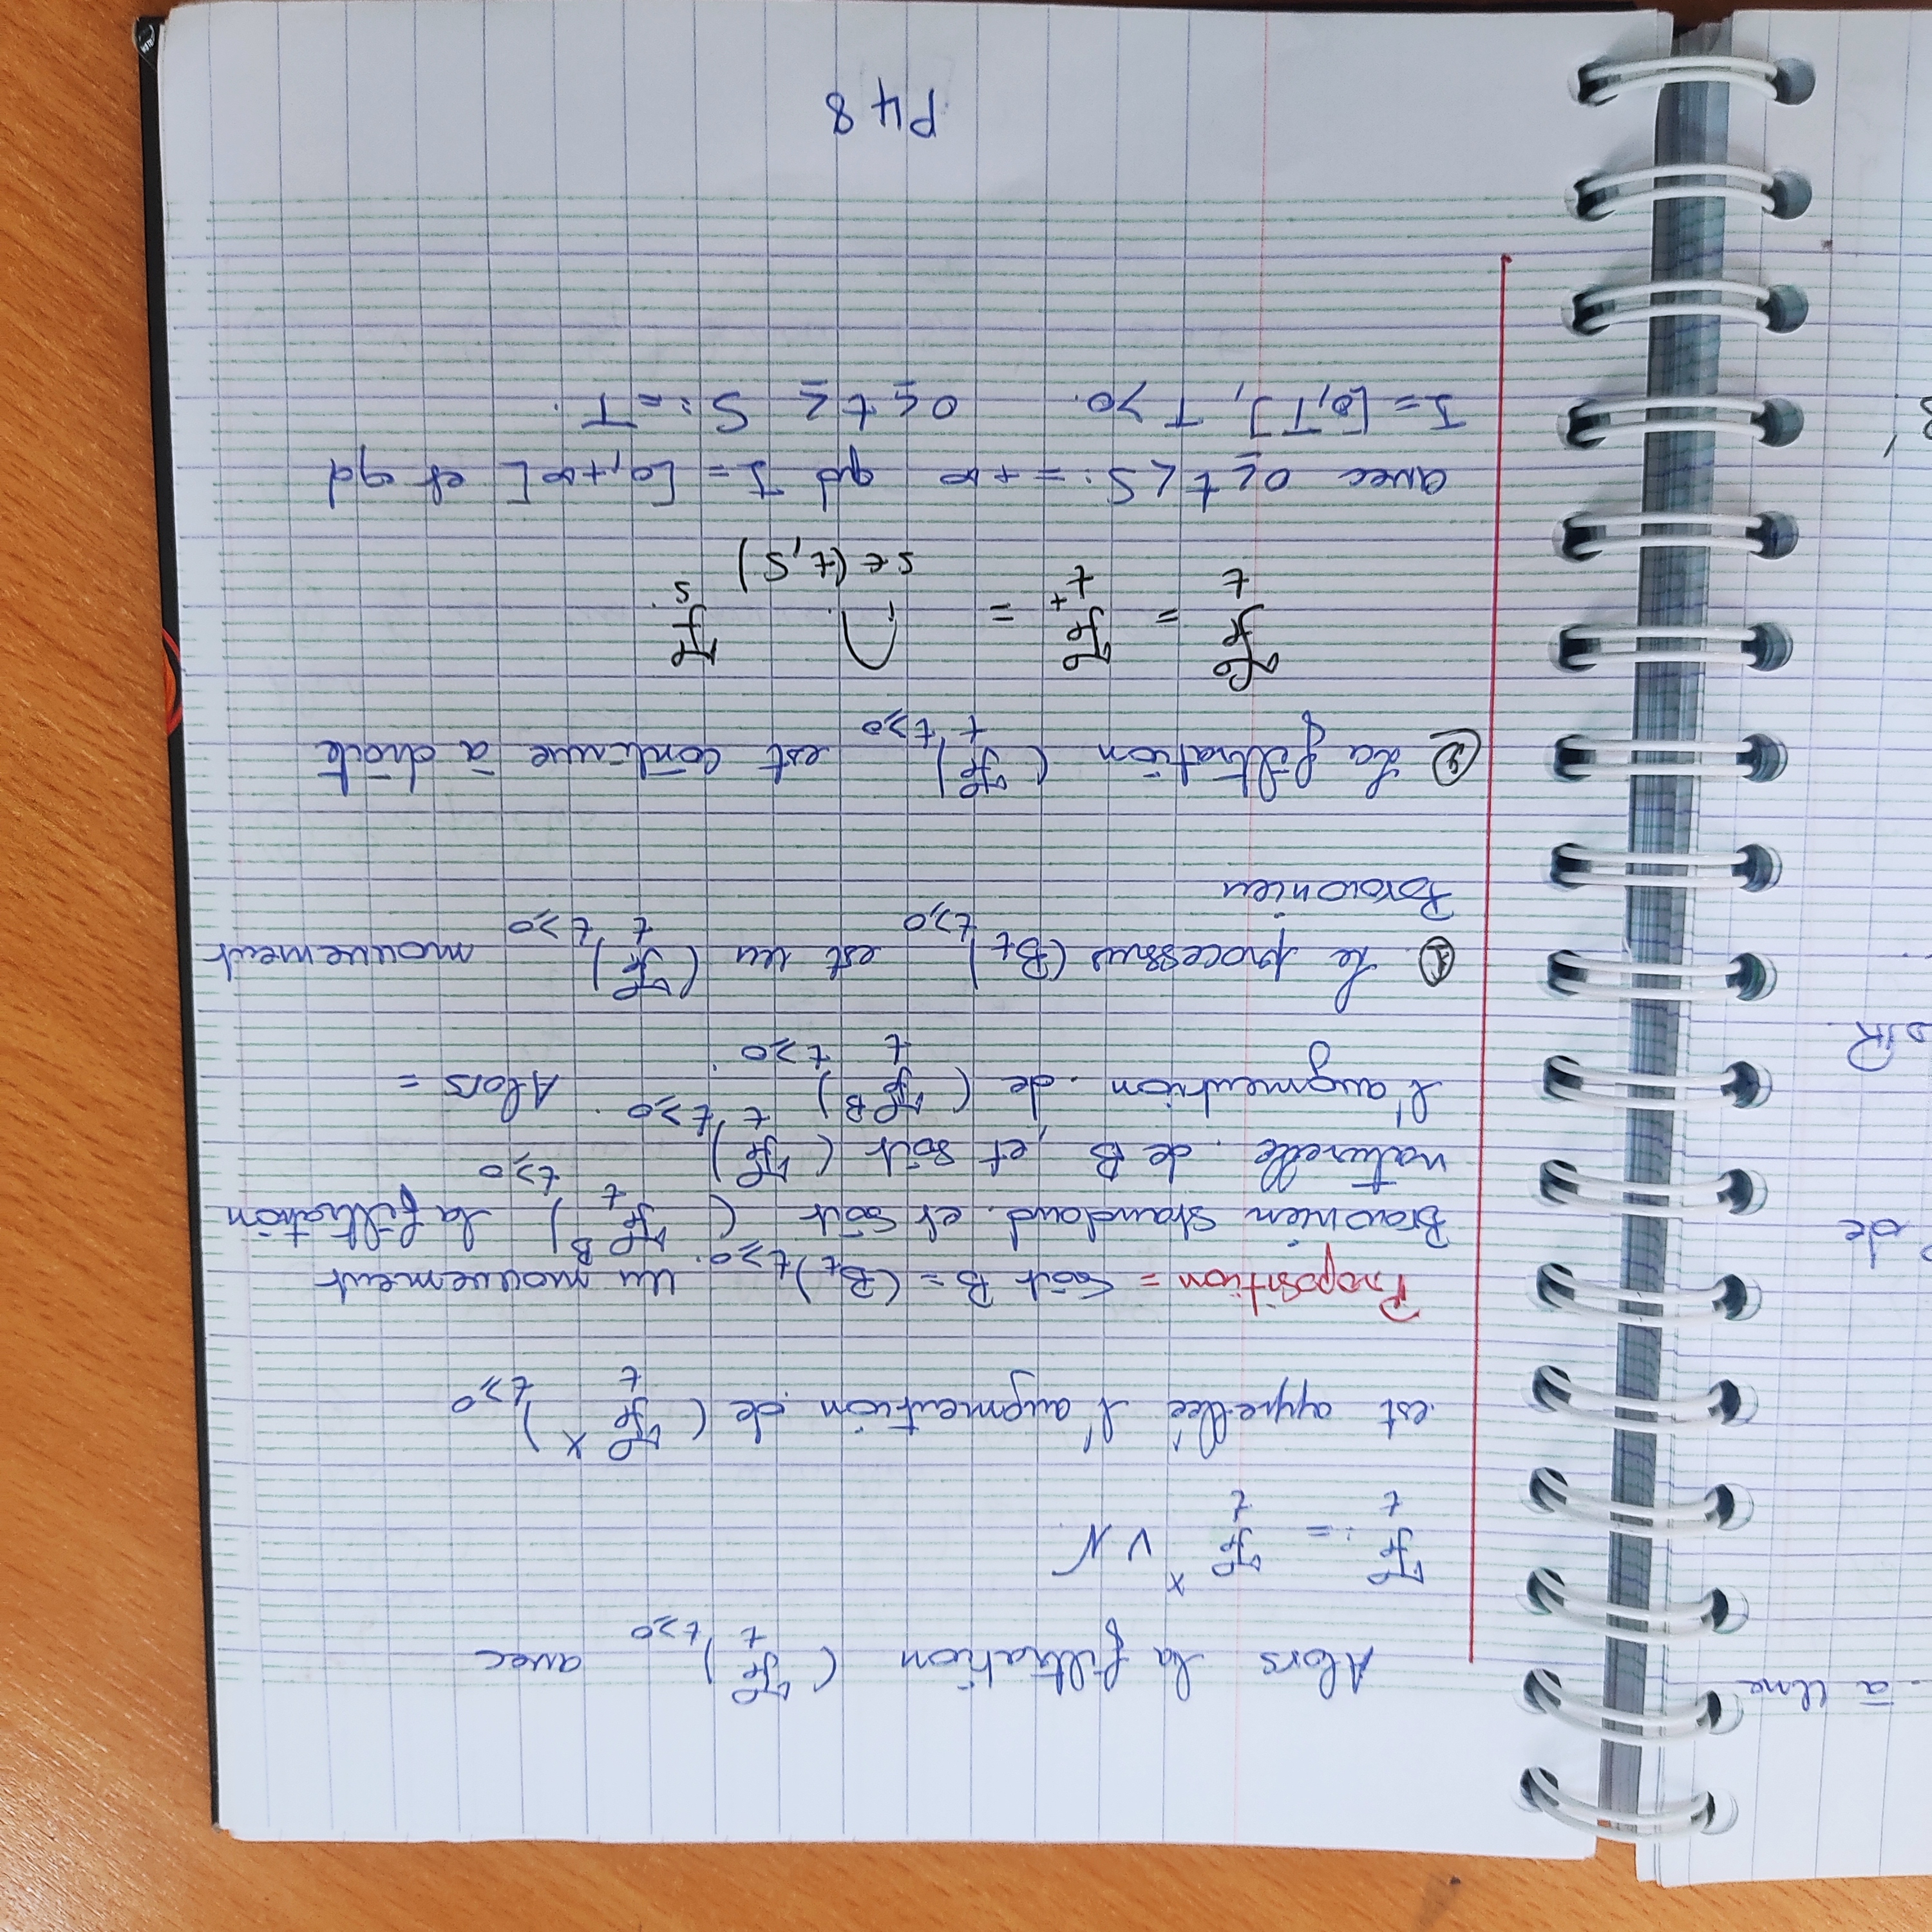 . à Une
Alors la filtration (ℱ_t)_{t≥0} avec
ℱ_t := ℱ_t^X ∨ N.
est appellée l'augmention de (ℱ_t^X)_{t≥0}
Proposition = Soit B = (B_t)_{t≥0}. Un mouvement
de
Brownien standard. et soit (ℱ_t^B)_{t≥0} la filtration
naturelle. de B, et soit (ℱ_t)_{t≥0}.
l'augmention. de (ℱ_t^B)_{t≥0}. Alors =
R.
① Le processus (B_t)_{t≥0} est un (ℱ_t)_{t≥0} mouvement
Brownien
② La filtration (ℱ_t)_{t≥0} est continue à droite
ℱ_t = ℱ_{t^+} = ⋂_{s∈(t,S)} ℱ_s.
avec 0≤t<S:=+∞ qd I=[0,+∞[ et qd
I=[0,T], T>0. 0≤t≤ S:=T.
P48